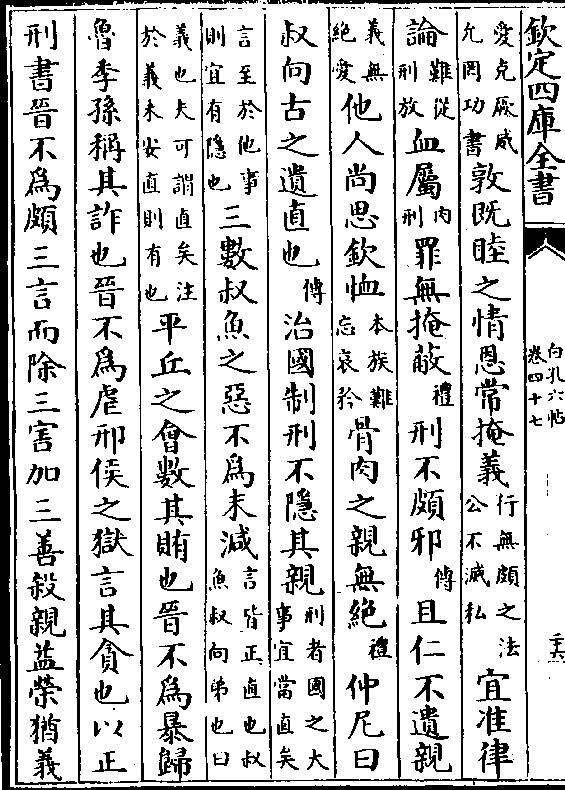 欽定四庫全書
白孔六帖
卷四十七
二十六
愛克厥威
允罔功書
敦旣睦之情恩常掩義
行無頗之法
公不滅私
宜准律
論
難從
刑放
血屬
肉
刑
罪無掩蔽
禮
刑不頗邪
傳
且仁不遺親
義無
絶愛
他人尚思欽恤
本族難
忘哀矜
骨肉之親無絶
禮
仲尼曰
叔向古之遺直也
傳
治國制刑不隱其親
刑者國之大
事宜當直矣
言至於他事
則宜有隱也
三數叔魚之惡不爲末減
言皆正直也叔
魚叔向弟也曰
義也夫可謂直矣注
於義未安直則有也
平丘之會數其賄也晉不爲暴歸
魯季孫稱其詐也晉不爲虐邢侯之獄言其貪也以正
刑書晉不爲頗三言而除三害加三善殺親益榮猶義